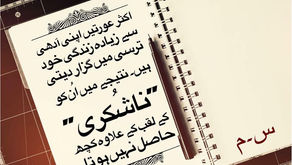 اکثر عورتیں اپنی آدھی
سے زیادہ زندگی خود
ترسی میں گزار دیتی
ہیں۔ نتیجے میں اُن کو
”ناشکری“
کے لقب کے علاوہ کچھ
حاصل نہیں ہوتا
س-م